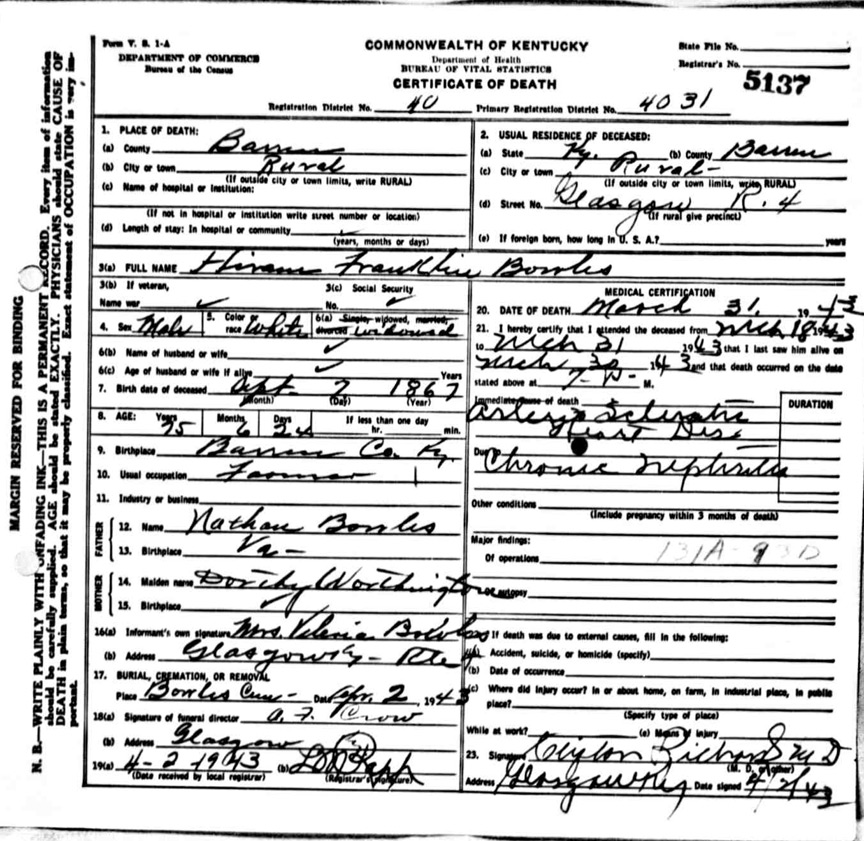 MARGIN RESERVED FOR BINDING
N. B.—WRITE PLAINLY WITH UNFADING INK—THIS IS A PERMANENT RECORD. Every item of information
should be carefully supplied. AGE should be stated EXACTLY. PHYSICIANS should state CAUSE OF
DEATH in plain terms, so that it may be properly classified. Exact statement of OCCUPATION is very im-
portant.
Form V. S. 1-A
DEPARTMENT OF COMMERCE
Bureau of the Census
COMMONWEALTH OF KENTUCKY
Department of Health
BUREAU OF VITAL STATISTICS
CERTIFICATE OF DEATH
State File No.
Registrar's No.
5137
Registration District No. 40 Primary Registration District No. 4031
1. PLACE OF DEATH:
(a) County Barren
(b) City or town Rural
(If outside city or town limits, write RURAL)
(c) Name of hospital or institution:
(If not in hospital or institution write street number or location)
(d) Length of stay: In hospital or community
(years, months or days)
2. USUAL RESIDENCE OF DECEASED:
(a) State Ky. (b) County Barren
(c) City or town Rural-
(If outside city or town limits, write RURAL)
(d) Street No. Glasgow R. 4
(If rural give precinct)
(e) If foreign born, how long in U. S. A.? years
3(a) FULL NAME Hiram Franklin Bowles
3(b) If veteran,
Name war
3(c) Social Security
No.
4. Sex Male 5. Color or race White 6(a) Single, widowed, married, divorced widowed
6(b) Name of husband or wife
6(c) Age of husband or wife if alive Years
7. Birth date of deceased Sept 7 1867
(Month) (Day) (Year)
8. AGE: Years 75 Months 6 Days 24 If less than one day hr. min.
9. Birthplace Barren Co. Ky.
10. Usual occupation Farmer
11. Industry or business
FATHER
12. Name Nathan Bowles
13. Birthplace Va-
MOTHER
14. Maiden name Dorthy Worthington
15. Birthplace
16(a) Informant's own signature Mrs. Bowles
(b) Address Glasgow Ky- Rte 4
17. BURIAL, CREMATION, OR REMOVAL
Place Bowles Cem- Date Apr. 2, 1943
18(a) Signature of funeral director A. F. Crow
(b) Address Glasgow
19(a) 4-2-1943 (b) Rapp
(Date received by local registrar) (Registrar's signature)
MEDICAL CERTIFICATION
20. DATE OF DEATH March 31, 1943
21. I hereby certify that I attended the deceased from Mch 18 1943
to Mch 31 1943 that I last saw him alive on
Mch 30 1943 and that death occurred on the date
stated above at 7-P- M.
Immediate cause of death DURATION
Arterio Sclerotic
Heart Dis.
Due to
Chronic Nephritis
Other conditions
(Include pregnancy within 3 months of death)
Major findings:
Of operations 131A-93D
Of autopsy
22. If death was due to external causes, fill in the following:
(a) Accident, suicide, or homicide (specify)
(b) Date of occurrence
(c) Where did injury occur? In or about home, on farm, in industrial place, in public
place?
(Specify type of place)
While at work? (e) Means of injury
23. Signature Clifton Richards MD
(M. D. or other)
Address Glasgow Ky Date signed 4/2/43